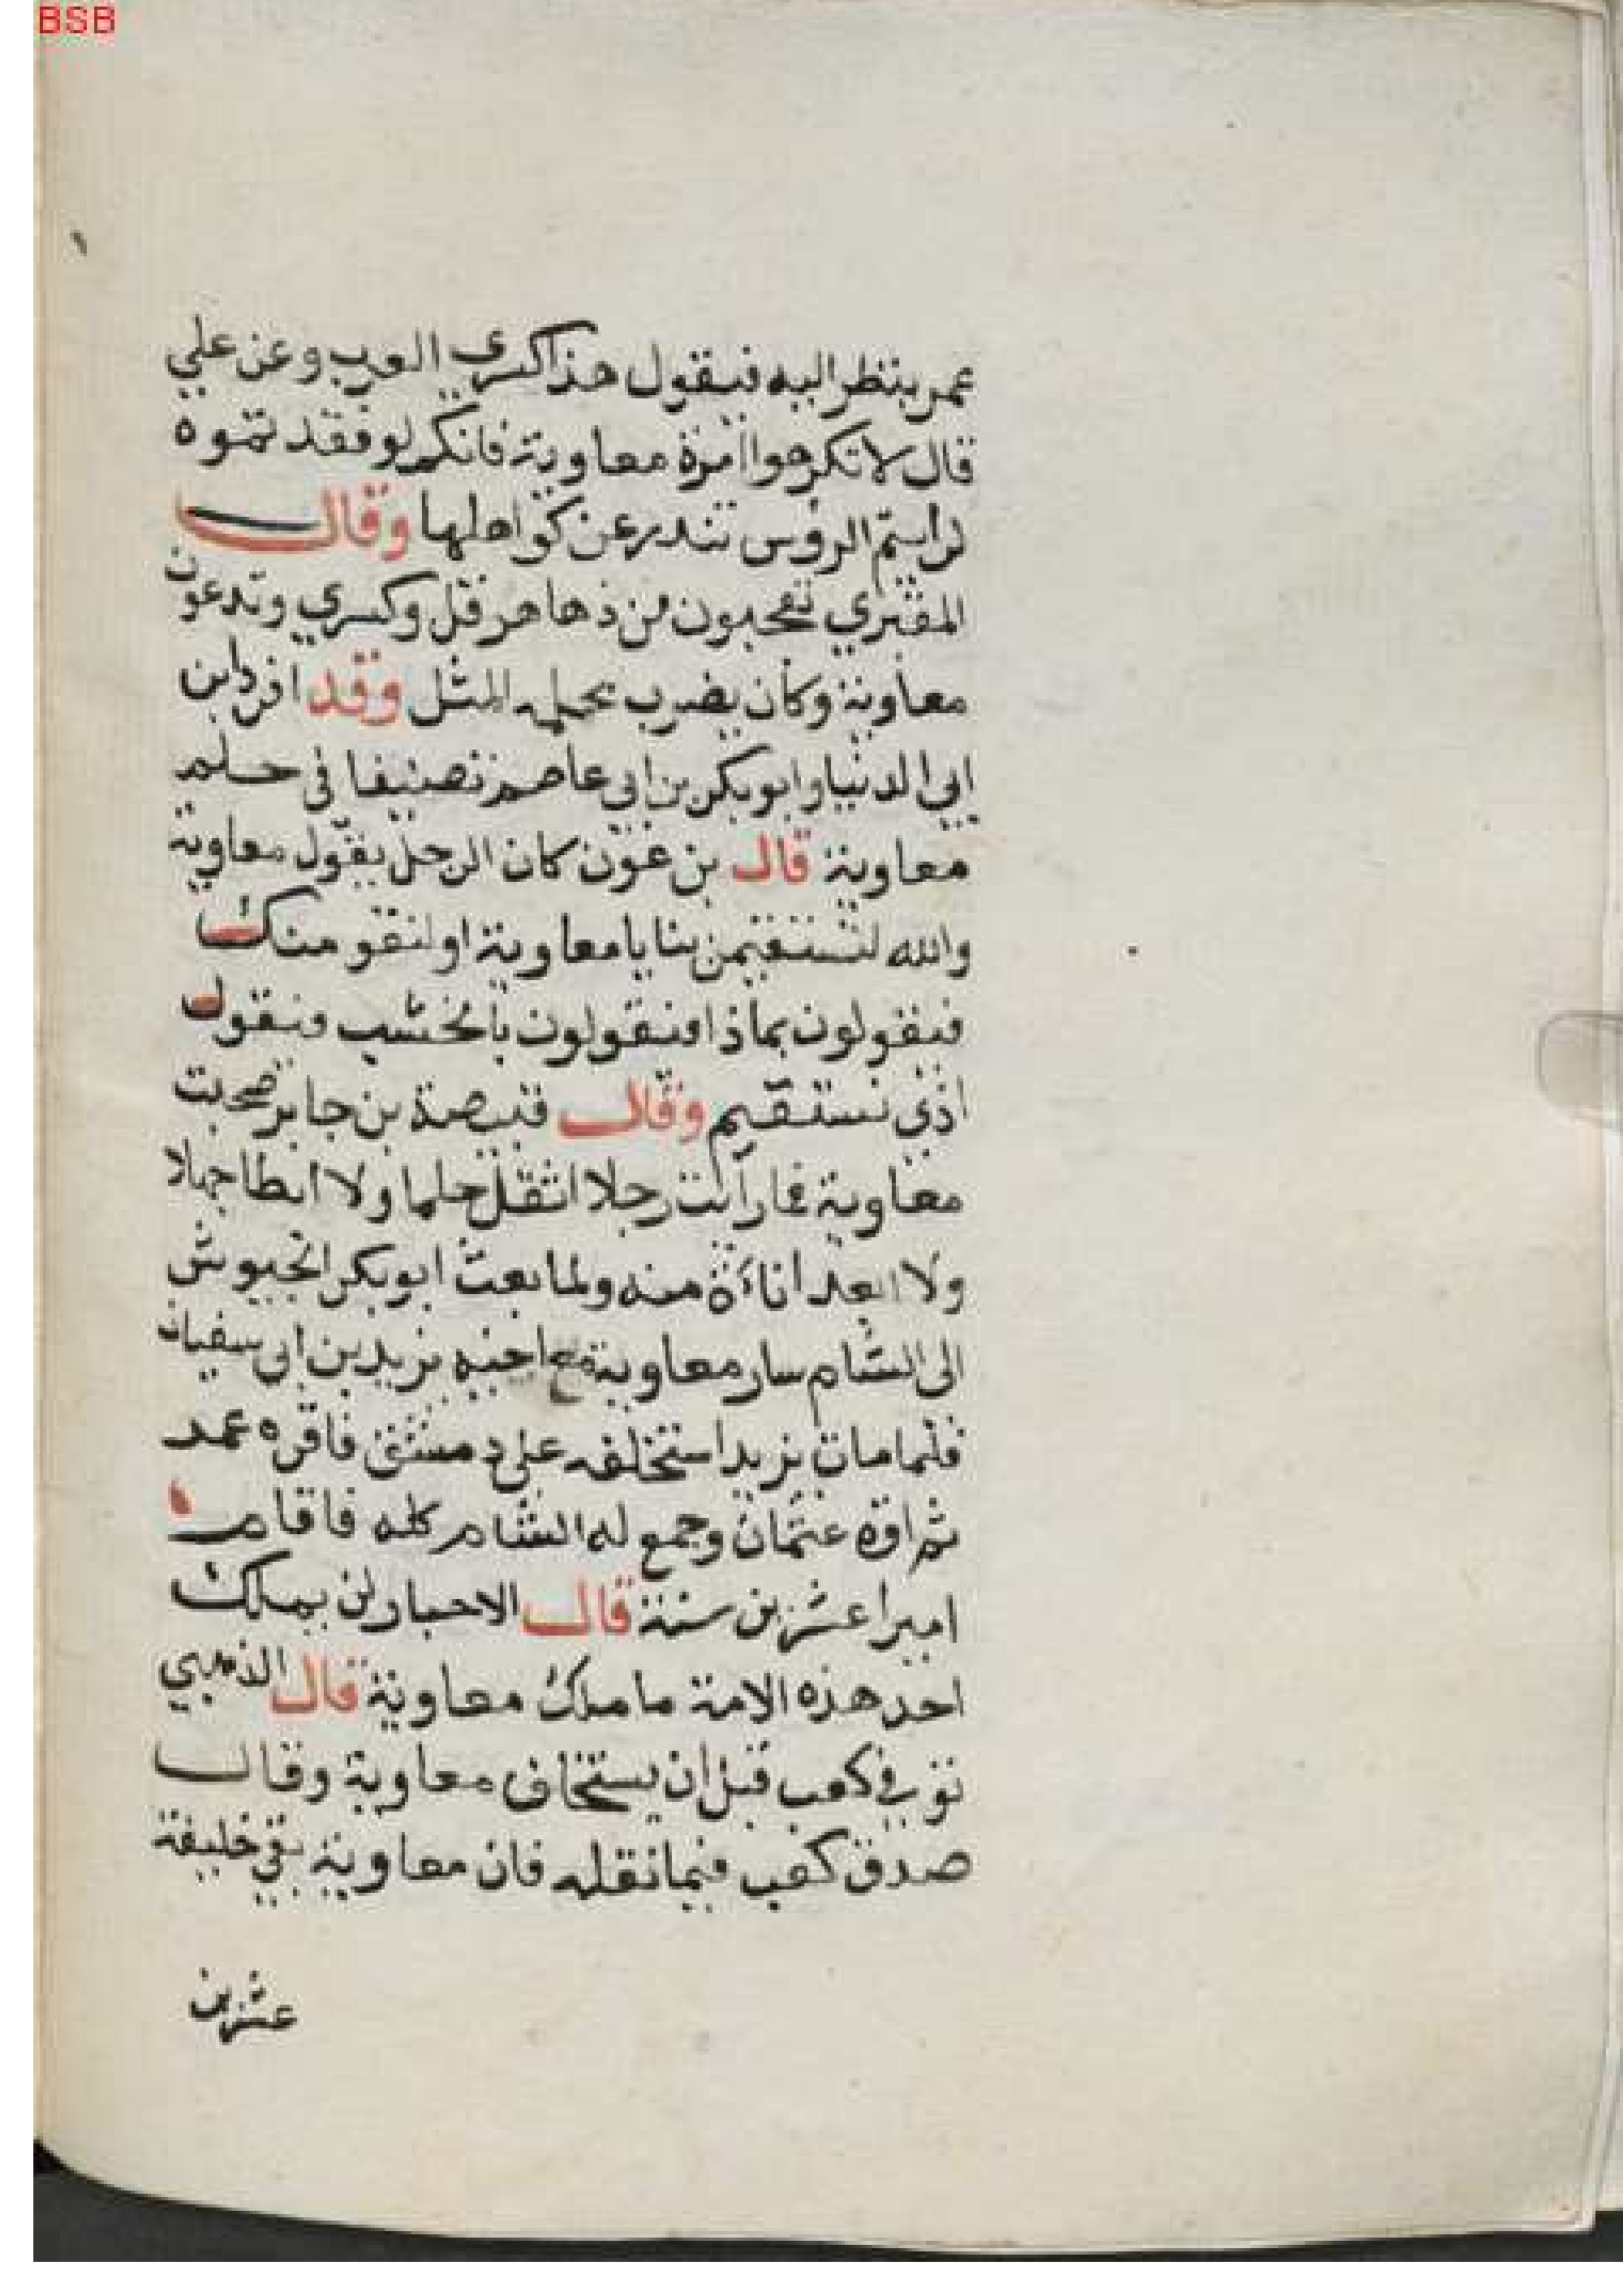 BSB
عمر ينظر اليه فيقول هذا كسري العرب وعن علي
قال لا تكرهوا امرة معاوية فانكم لو فقدتموه
لرايتم الرؤس تندر عن كواهلها وقال
المقتري تعجبون من دها هرقل وكسري وتدعون
معاوية وكان يضرب بحلمه المثل وقد افرد ابن
ابي الدنيا وابو بكر بن ابي عاصم تصنيفا في حلم
معاوية قال بن عون كان الرجل يقول معاوية
والله لتستقيمن بنا يا معاوية او لنقومنك
فيقولون بماذا فيقولون بالخشب فيقول
اذي نستقيم وقال قبيصة بن جابر صحبت
معاوية فما رايت رجلا اثقل حلما ولا ابطا جهلا
ولا ابعد اناءة منه ولما بعث ابو بكر الجيوش
الى الشام سار معاوية مع اخيه يزيد بن ابي سفيان
فلما مات يزيد استخلفه على دمشق فاقره عمد
ثم اقره عثمان وجمع له الشام كله فاقام
اميرا عشرين سنة قال الاحبار لن يملك
احد هذه الامة ما ملك معاوية قال الذهبي
توفي كعب قبل ان يستخلف معاوية وقال
صدق كعب فيما نقله فان معاوية بقي خليفة
عشرين